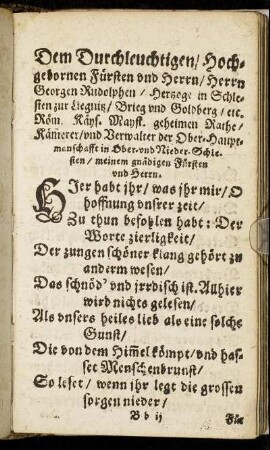 Dem Durchleuchtigen/ Hoch-
gebornen Fürsten vnd Herrn/ Herrn
Georgen Rudolphen/ Hertzoge in Schle-
sien zur Liegnitz/ Brieg vnd Goldberg/ etc.
Röm. Käys. Mayst. geheimen Rathe/
Käm̃erer/ vnd Verwalter der Ober-Haupt-
manschafft in Ober-vnd Nieder-Schle-
sien/ meinem gnädigen Fürsten
vnd Herrn.
HIer habt jhr/ was jhr mir/ O
hoffnung vnsrer zeit/
Zu thun befohlen habt: Der
Worte zierligkeit/
Der zungen schöner klang gehört zu
anderm wesen/
Das schnöd' vnd jrrdisch ist. Allhier
wird nichts gelesen/
Als vnsers heiles lieb als eine solche
Gunst/
Die von dem Him̃el kömpt/ vnd has-
set Menschenbrunst/
So leset/ wenn jhr legt die grossen
sorgen nieder/
B b ij
Für